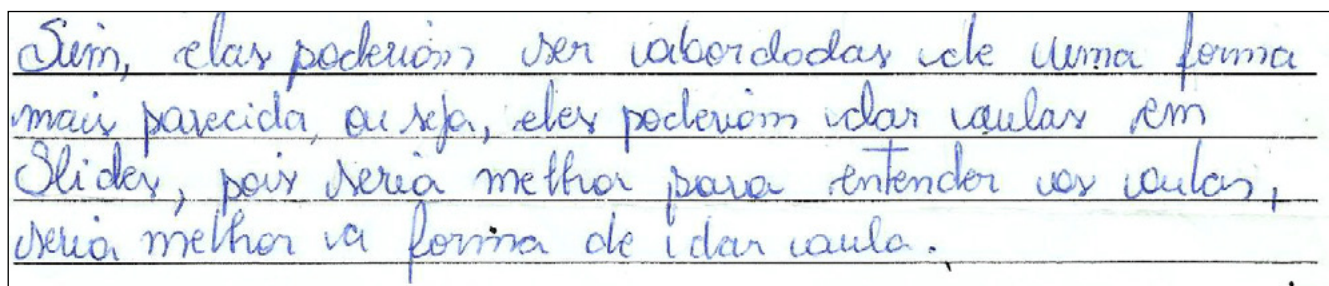 Sim, elas poderiam ser abordadas de uma forma
mais parecida, ou seja, eles poderiam dar aulas em
Slides, pois seria melhor para entender as aulas,
seria melhor a forma de dar aula.